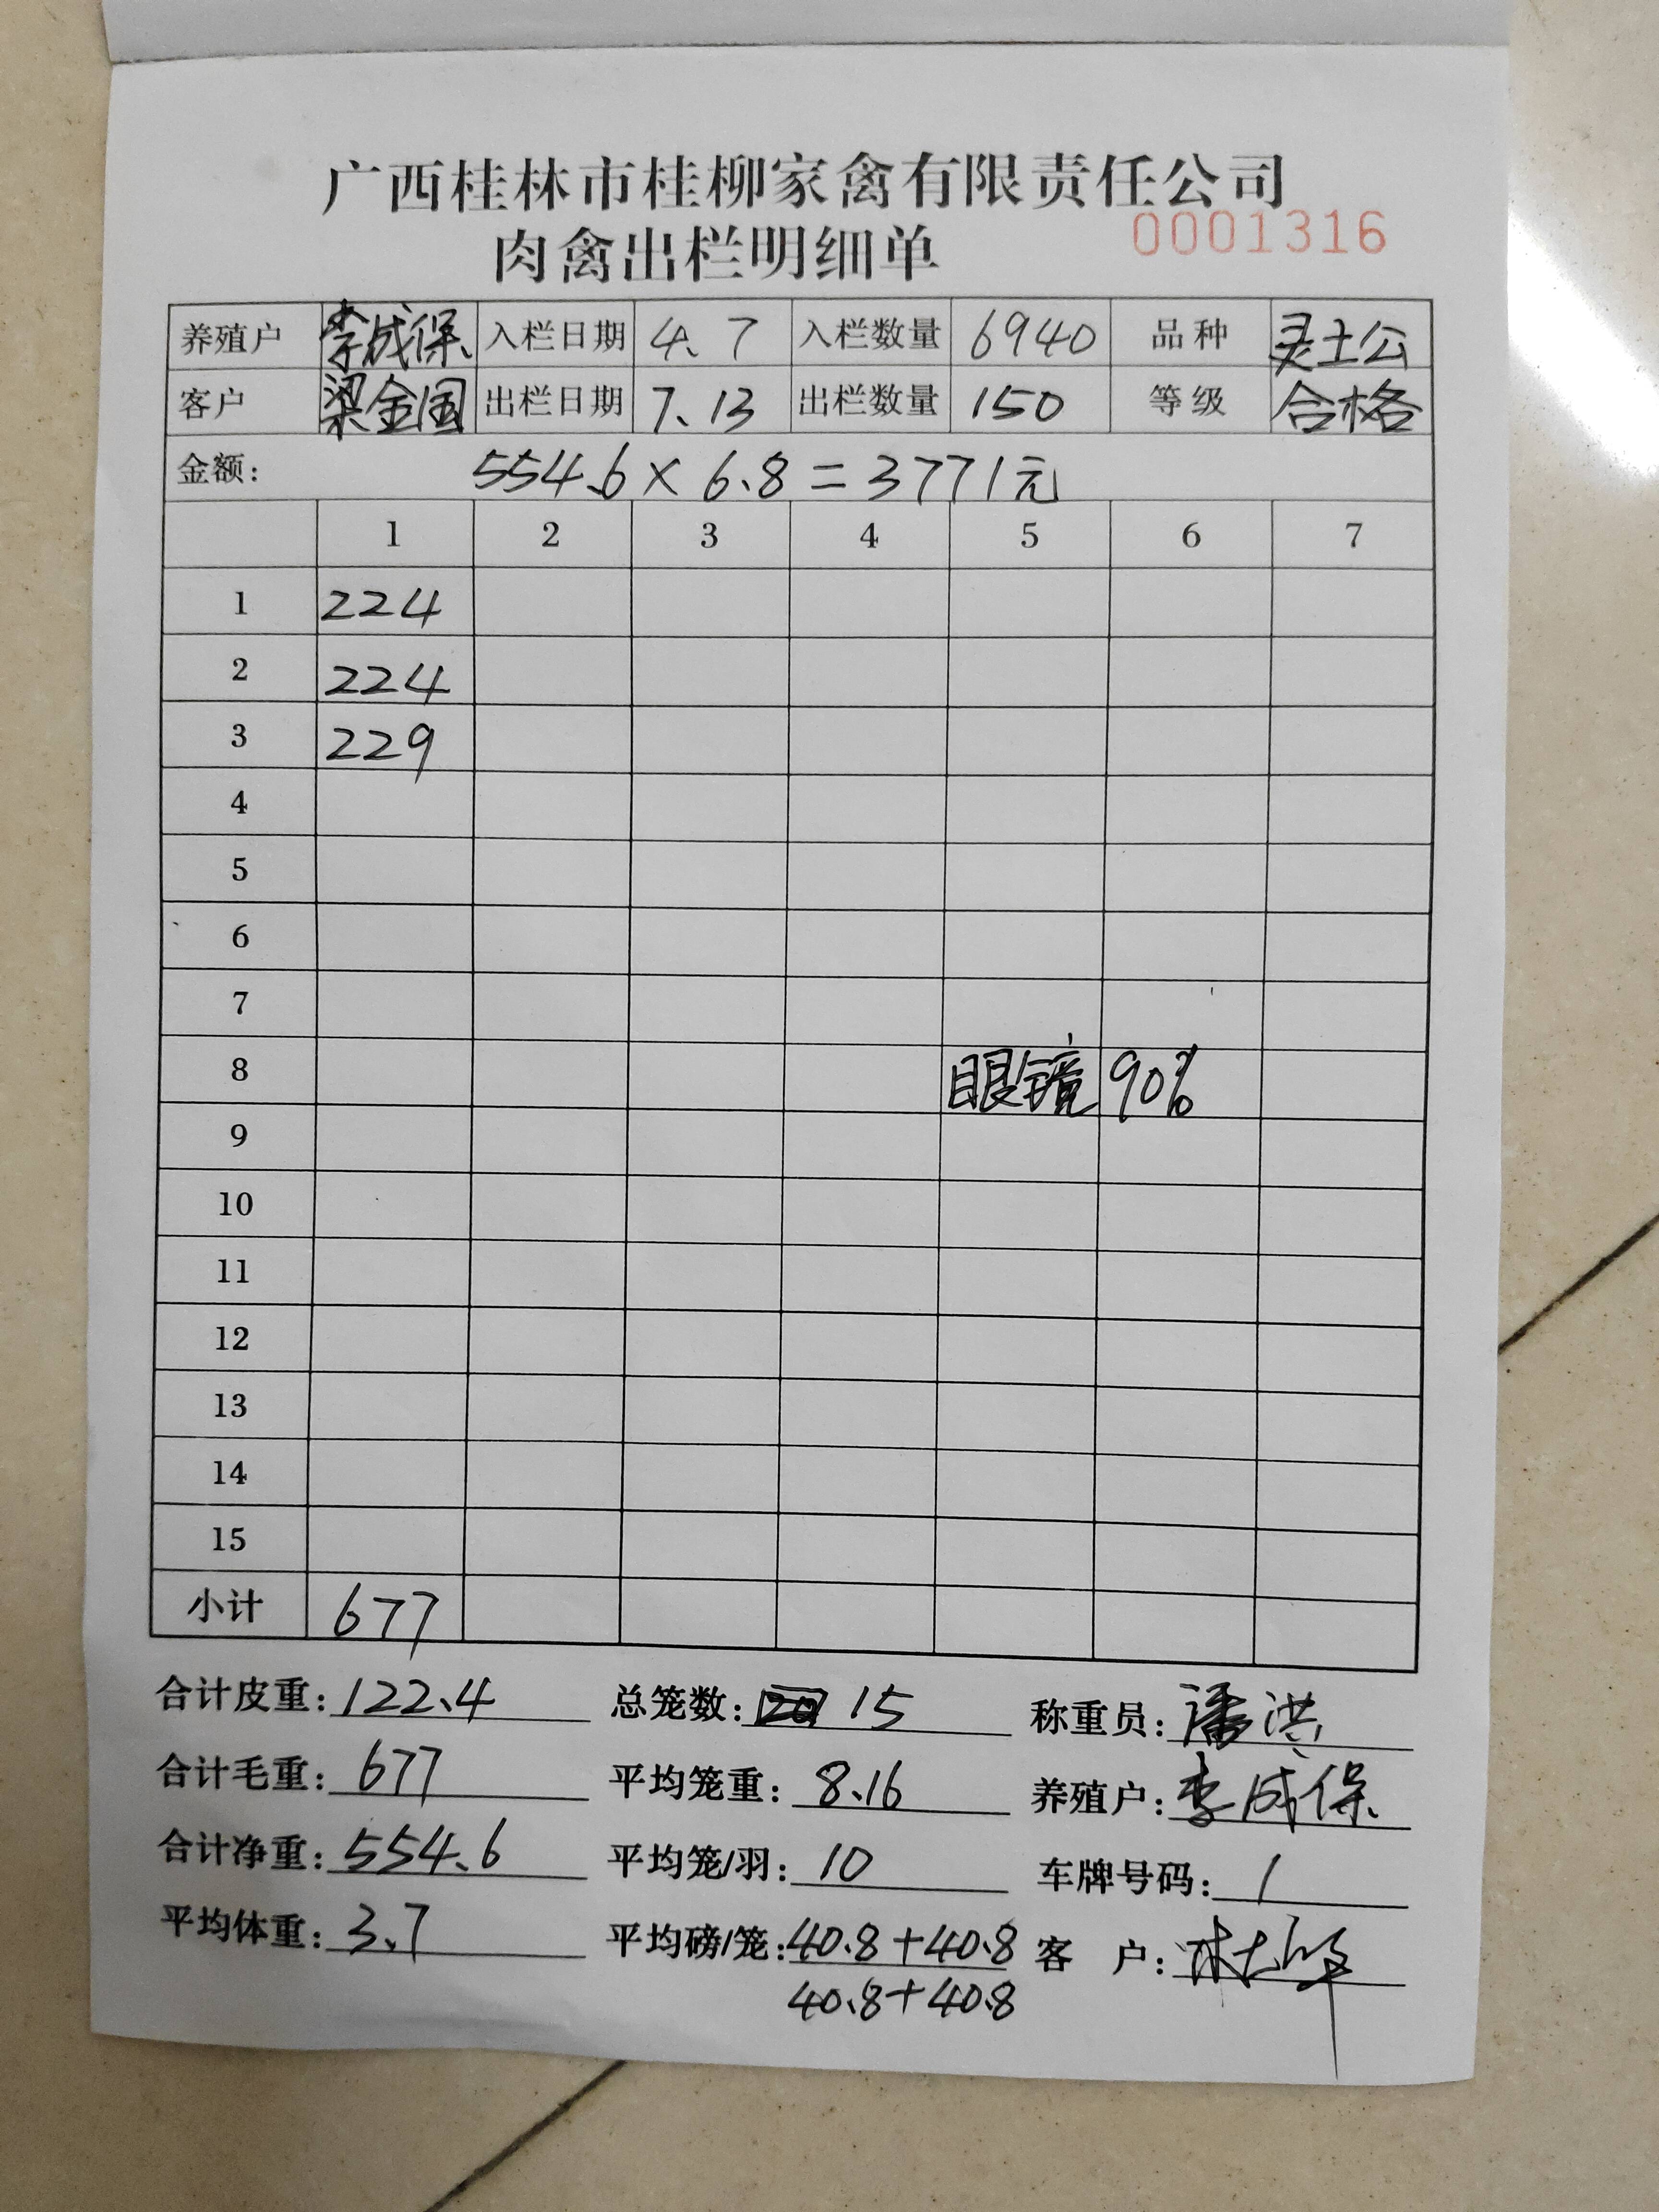 广西桂林市桂柳家禽有限责任公司
肉禽出栏明细单 0001316
养殖户 李成保、 入栏日期 4、7 入栏数量 6940 品种 灵土公
客户 梁金国 出栏日期 7、13 出栏数量 150 等级 合格
金额: 554.6×6.8=3771元
1 2 3 4 5 6 7
1 224
2 224
3 229
4
5
6
7
8 眼镜 90%
9
10
11
12
13
14
15
小计 677
合计皮重: 122.4 总笼数: 15 称重员: 潘洪
合计毛重: 677 平均笼重: 8.16 养殖户: 李成保
合计净重: 554.6 平均笼/羽: 10 车牌号码: 1
平均体重: 3.7 平均磅/笼: 40.8+40.8 客 户:
40.8+40.8